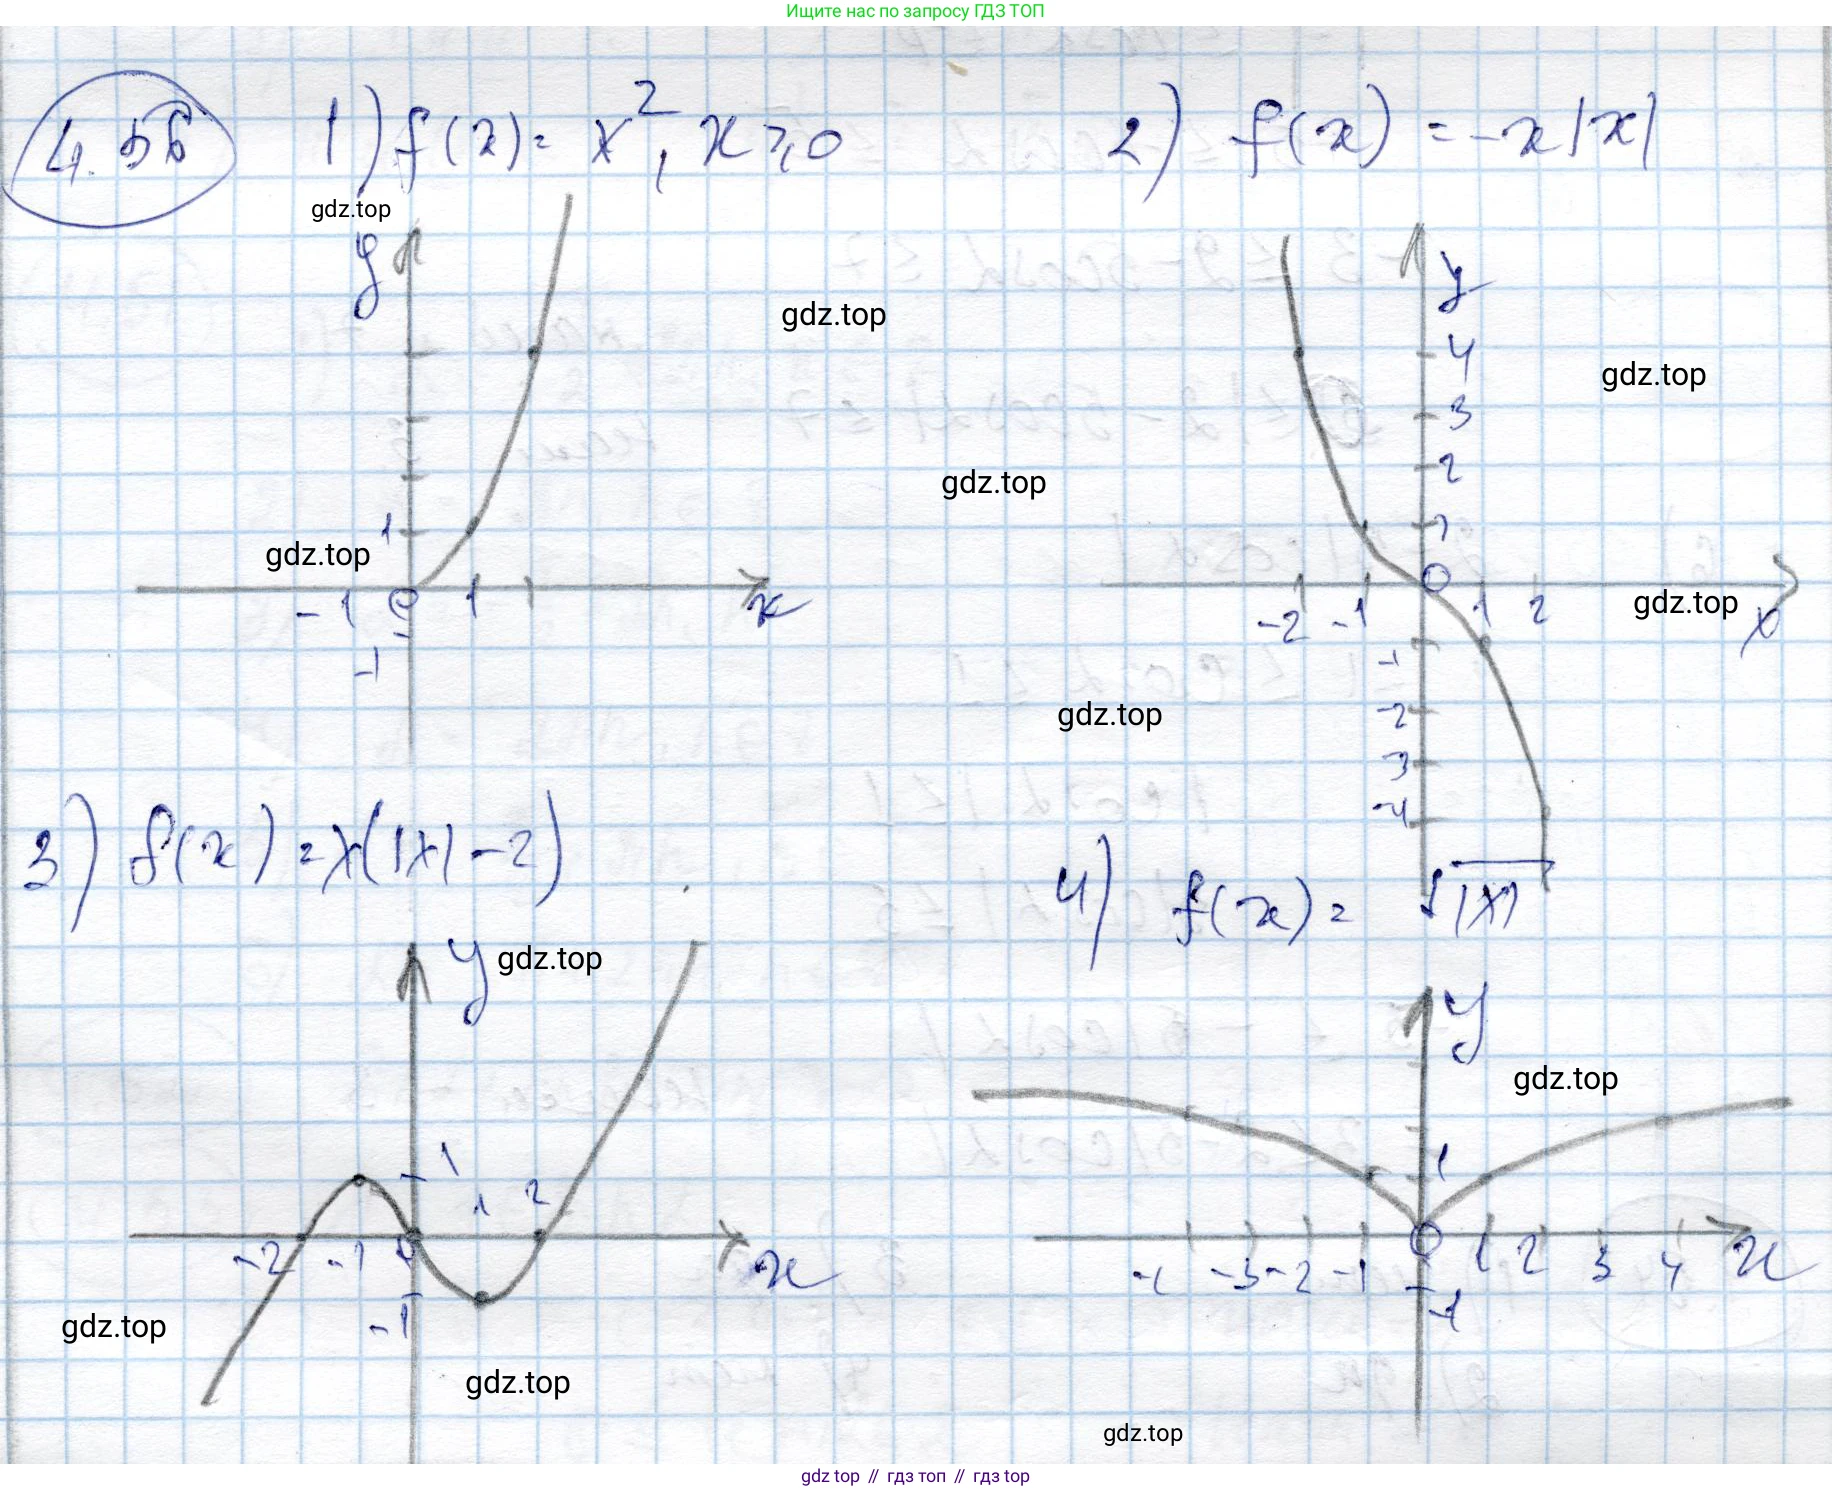 Ищите нас по запросу ГДЗ ТОП
4.5б
1) f(x) = x², x ≥ 0
2) f(x) = -x|x|
gdz.top
y
y
gdz.top
4
gdz.top
3
2
gdz.top
1
1
gdz.top
0
-1 0 1
x
-2 -1
1 2
gdz.top
x
-1
-1
-2
gdz.top
-3
-4
3) f(x) = x(|x| - 2)
4) f(x) = √|x|
y
gdz.top
y
gdz.top
1
1 2
1
-2 -1 0
x
0
-4 -3 -2 -1
1 2 3 4
x
-1
-1
gdz.top
gdz.top
gdz.top
gdz top // гдз топ // гдз top